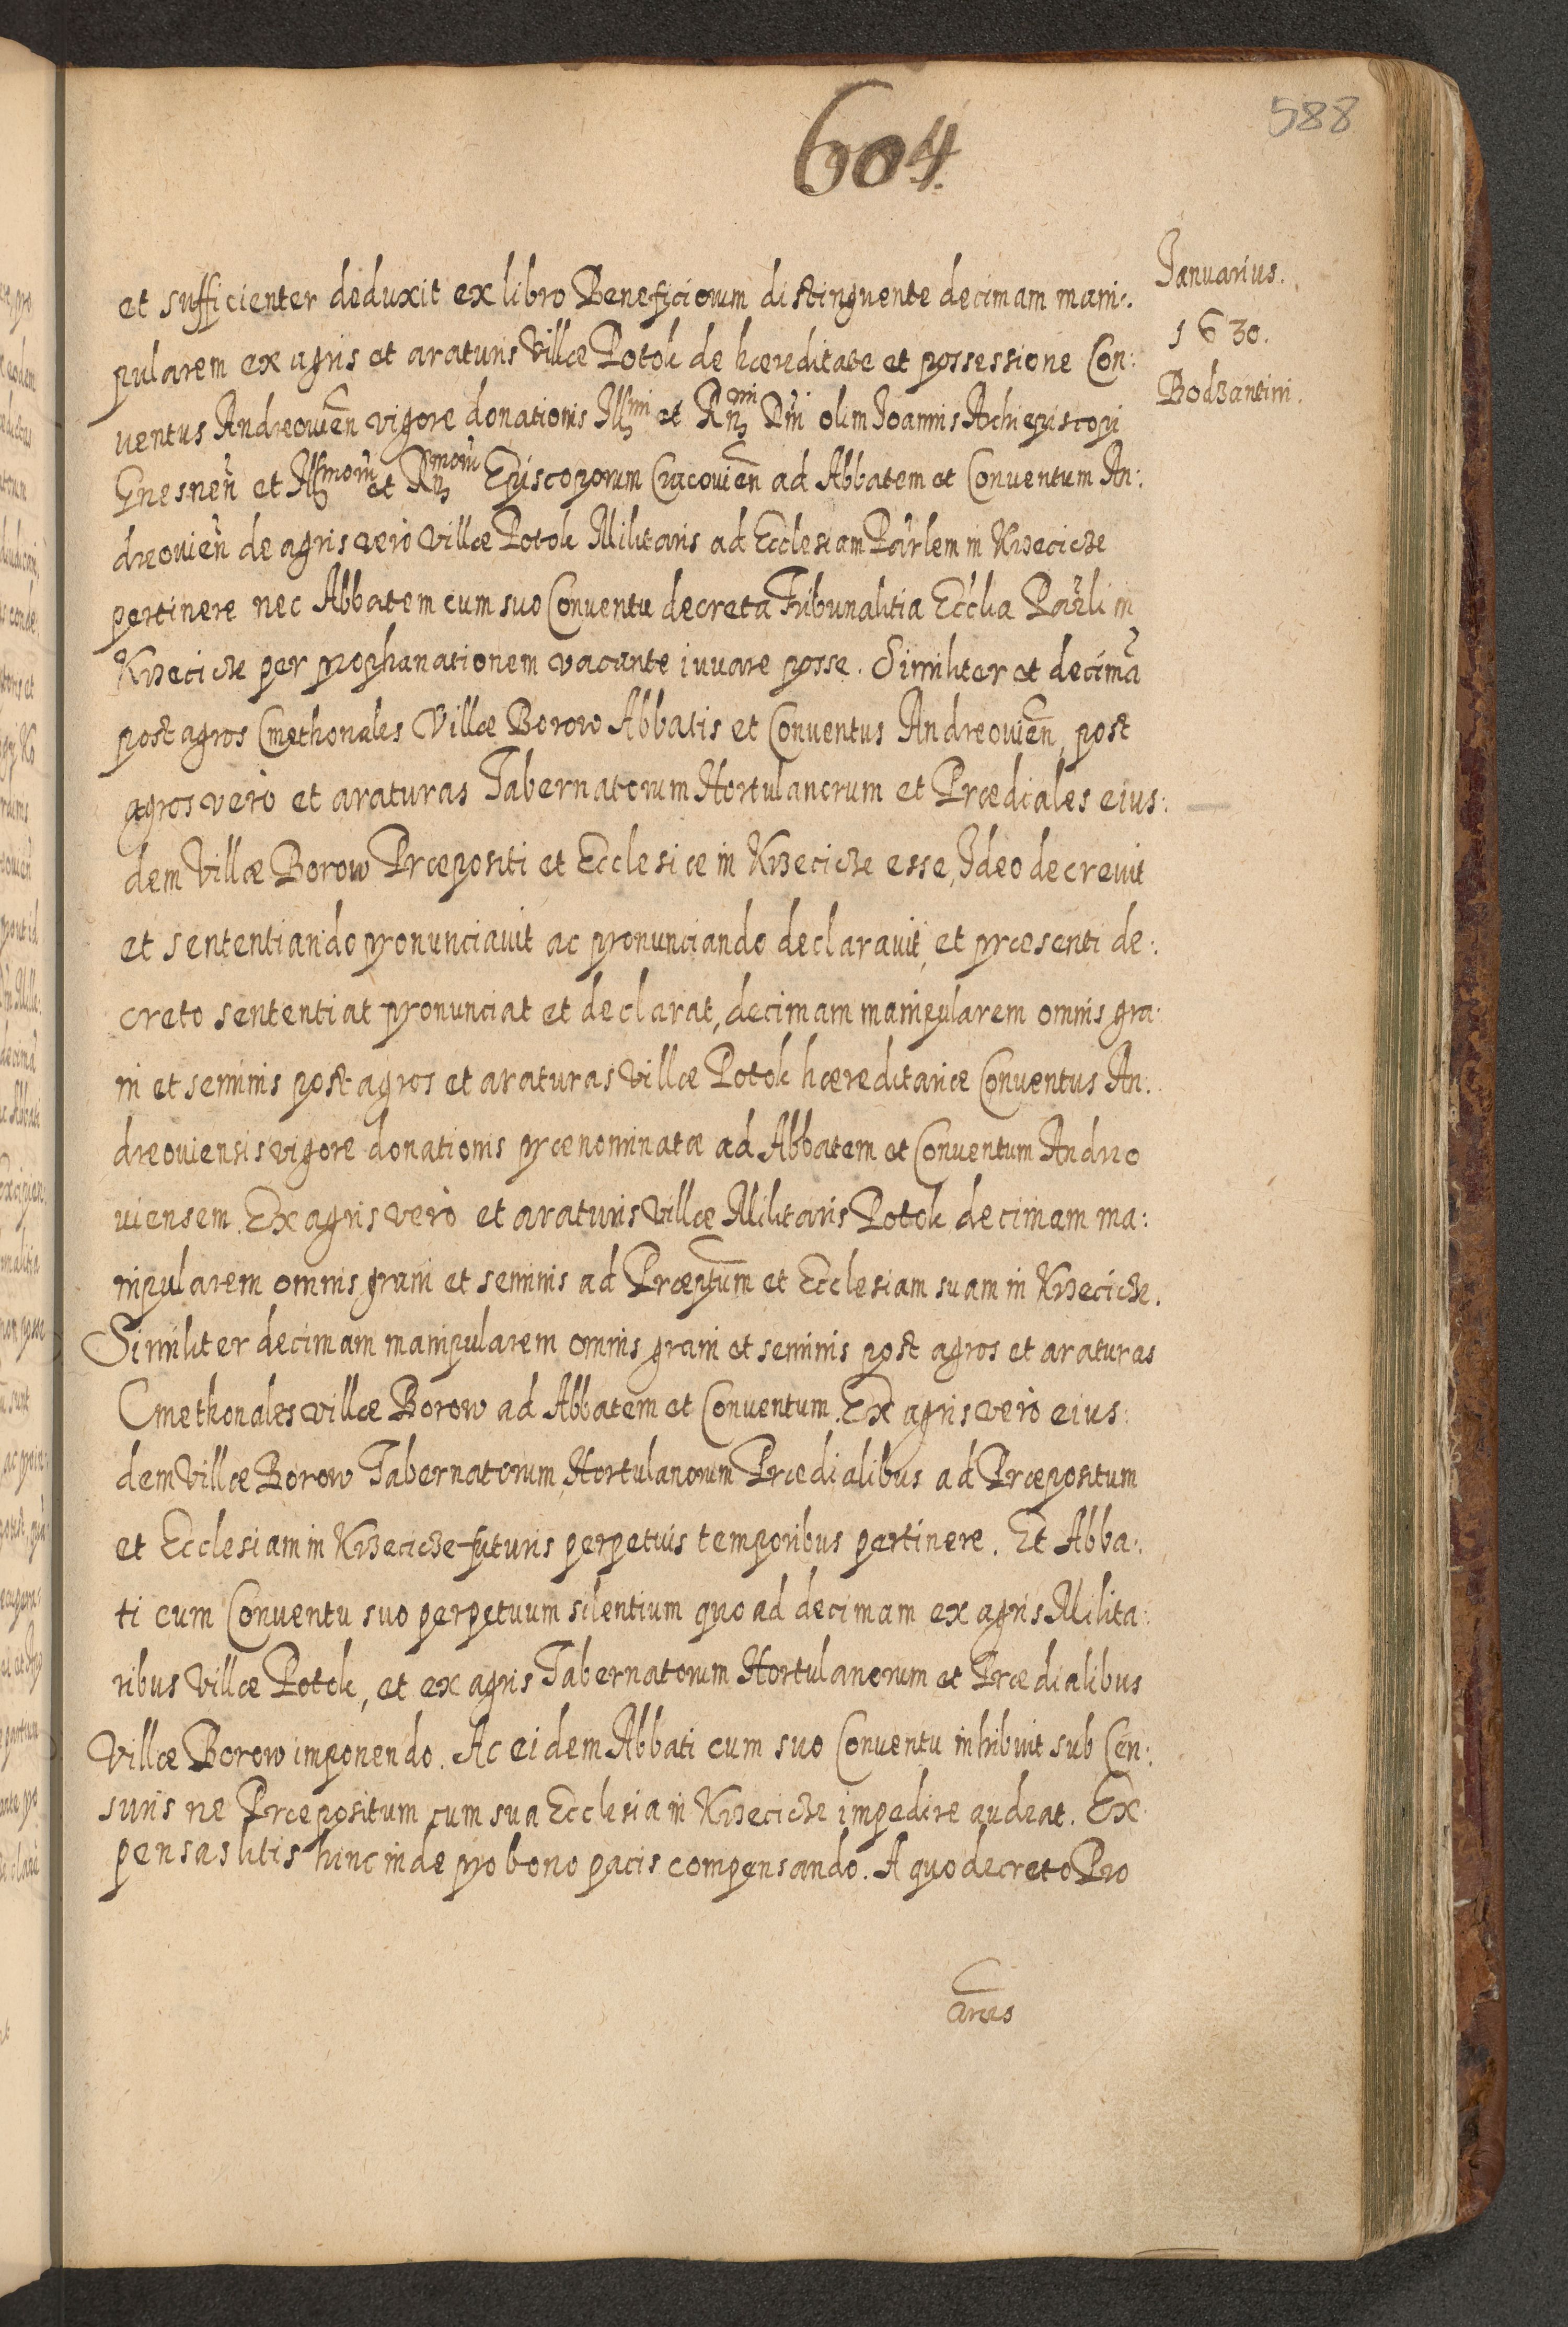 604.
588
Januarius.
1630.
Bodzantini.
et sufficienter deduxit ex libro Beneficiorum distinguente decimam mani:
pularem ex agris et araturis Villæ Potok de hæreditate et possessione Con:
uentus Andreouien̄ vigore donationis Illmi et Rn̄mi Dn̄i olim Joannis Archiepiscopi
Gnesnen̄ et Illmorum̄ et Rn̄morum̄ Episcoporum Cracouien̄ ad Abbatem et Conuentum An:
dreouien̄ de agris verò villæ Potok Militaris ad Ecclesiam Parl̄em in Krzecicze
pertinere nec Abbatem cum suo Conuentu decreta Tribunalitia Eccl̄ia Par̄li in
Krzecicze per prophanationem vacante iuuare posse. Similiter et decimā
post agros Cmethonales Villæ Borow Abbatis et Conuentus Andreouien̄, post
agros verò et araturas Tabernatorum Hortulanorum et Prædiales eius:
dem Villæ Borow Præpositi et Ecclesiæ in Krzecicze esse, Ideo decreuit
et sententiando pronunciauit ac pronunciando declarauit, et præsenti de:
creto sententiat pronunciat et declarat, decimam manipularem omnis gra:
ni et seminis post agros et araturas villæ Potok hæreditariæ Conuentus An:
dreouiensis vigore donationis prænominatæ ad Abbatem et Conuentum Andreo
uiensem. Ex agris verò et araturis villæ Militaris Potok decimam ma:
nipularem omnis grani et seminis ad Præptūm et Ecclesiam suam in Krzecicze.
Similiter decimam manipularem omnis grani et seminis post agros et araturas
Cmethonales villæ Borow ad Abbatem et Conuentum. Ex agris verò eius:
dem Villæ Borow Tabernatorum, Hortulanorum Prædialibus ad Præpositum
et Ecclesiam in Krzecicze futuris perpetuis temporibus pertinere. Et Abba:
ti cum Conuentu suo perpetuum silentium quo ad decimam ex agris Milita:
ribus villæ Potok, et ex agris Tabernatorum Hortulanorum et Prædialibus
Villæ Borow imponendo. Ac eidem Abbati cum suo Conuentu inhibuit sub Cen:
suris ne Præpositum cum sua Ecclesia in Krzecicze impedire audeat. Ex
pensas litis hinc inde pro bono pacis compensando. A quo decreto Pro